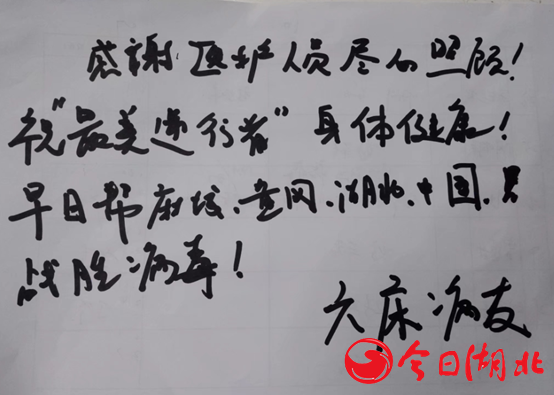 感謝医护人员尽心照顾!
祝"最美逆行者"身体健康!
早日帮麻城、黄冈、湖北、中国、
战胜病毒!
六床病友
今日湖北